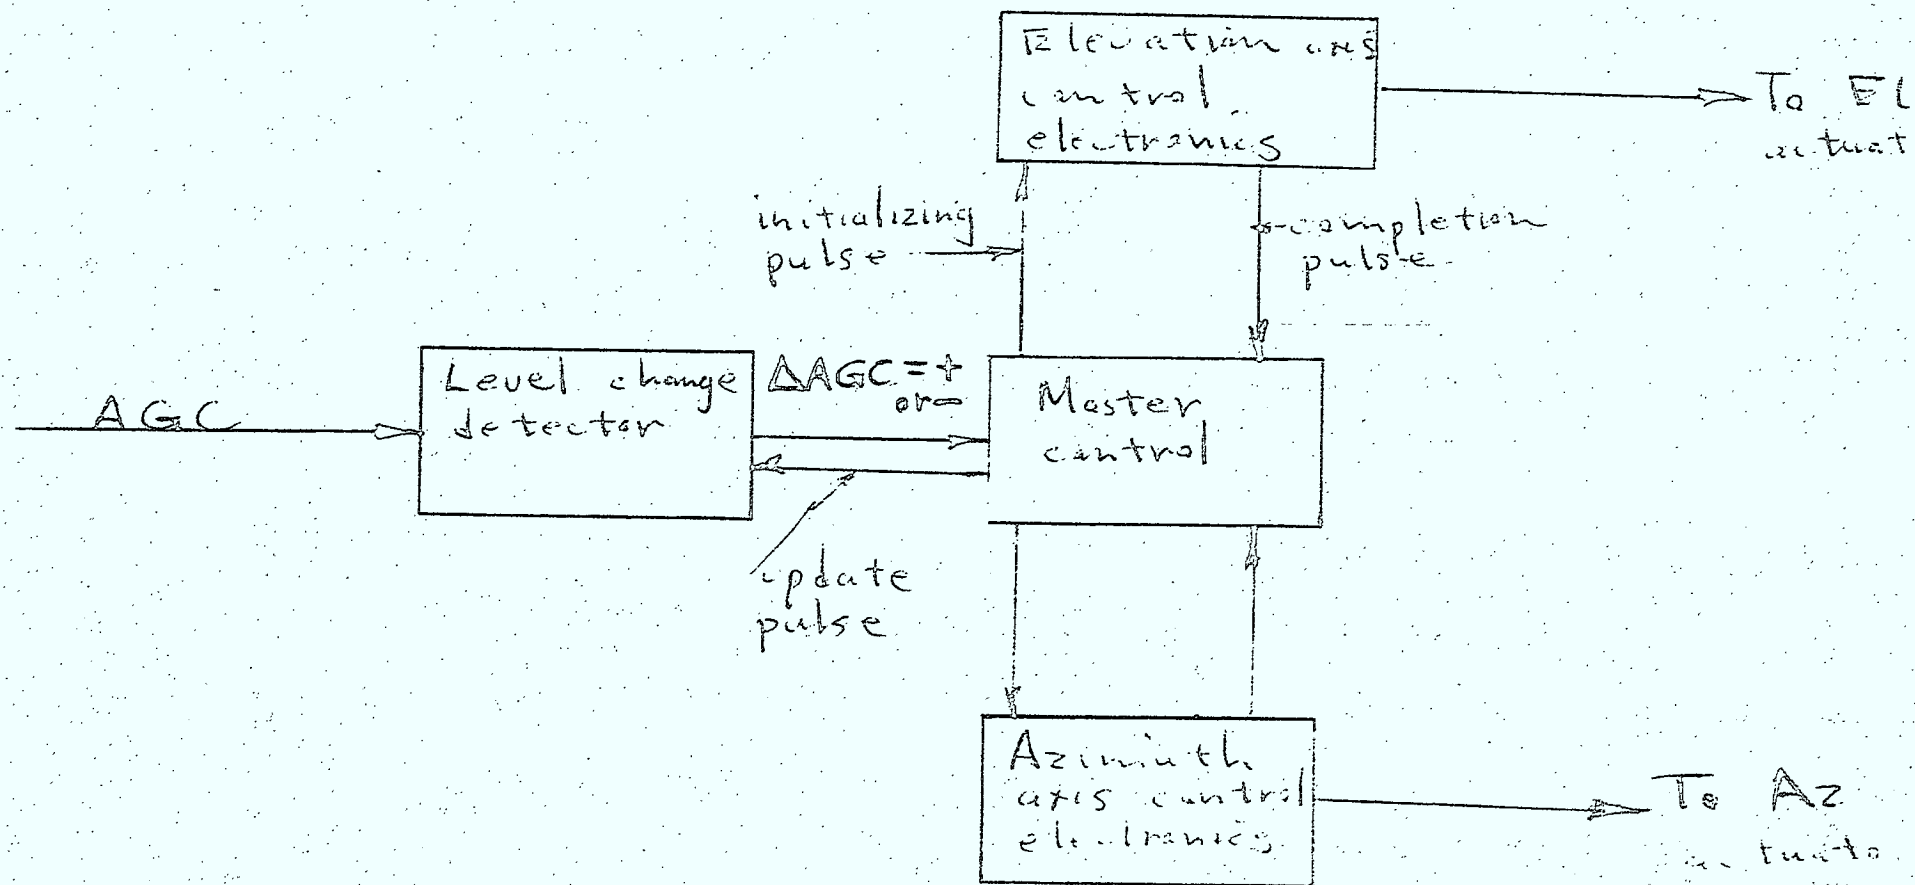 Elevation axis
control
electronics
To EL
initializing
pulse
completion
pulse
AGC
Level change
detector
ΔAGC = +
or -
Master
control
update
pulse
Azimuth
axis control
electronics
To Az